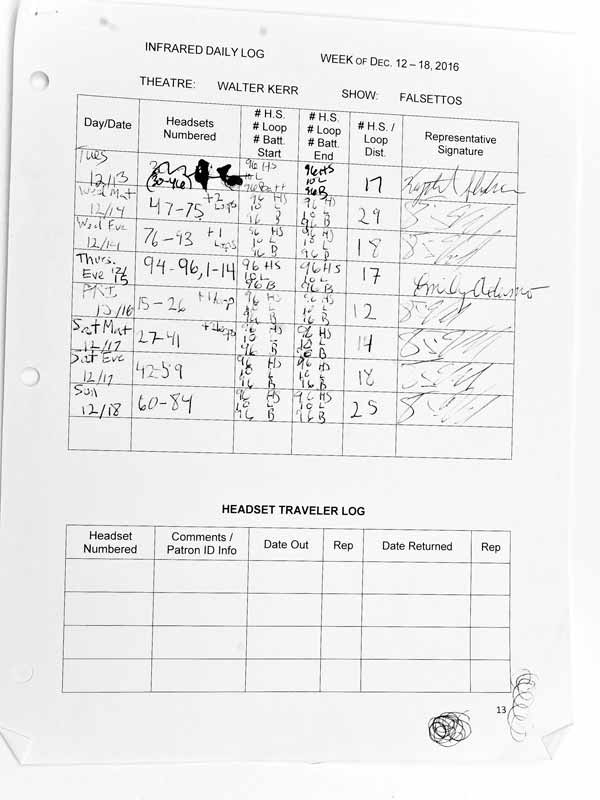 INFRARED DAILY LOG WEEK OF DEC. 12 – 18, 2016
THEATRE: WALTER KERR SHOW: FALSETTOS
Day/Date Headsets Numbered # H.S. # Loop # Batt. Start # H.S. # Loop # Batt. End # H.S. / Loop Dist. Representative Signature
Tues 12/13 (30-46) 96 HS 10 L 96 Batt 96 HS 10 L 96 B 17
Wed Mat 12/14 47-75 +2 Loops 96 HS 10 L 96 B 96 HS 10 L 96 B 29
Wed Eve 12/14 76-93 +1 Loops 96 HS 10 L 96 B 96 HS 10 L 96 B 18
Thurs. Eve 12/15 94-96, 1-14 96 HS 10 L 96 B 96 HS 10 L 96 B 17 Emily Adams
FRI 12/16 15-26 +1 Loop 96 HS 10 L 96 B 96 HS 10 L 96 B 12
Sat Mat 12/17 27-41 96 HS 10 L 96 B 96 HS 10 L 96 B 14
Sat Eve 12/17 42-59 96 HS L 96 B 96 HS 10 L 96 B 18
Sun 12/18 60-84 96 HS 10 L 96 B 96 HS 10 L 96 B 25
HEADSET TRAVELER LOG
Headset Numbered Comments / Patron ID Info Date Out Rep Date Returned Rep
13